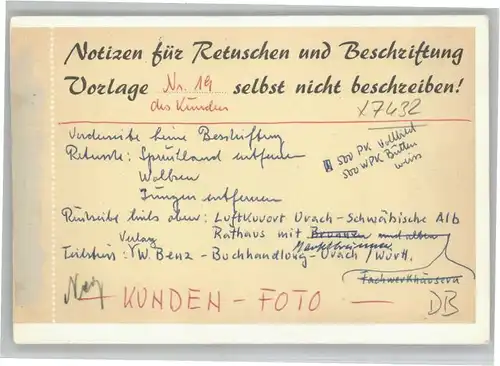 Notizen für Retuschen und Beschriftung
Vorlage Nr. 19 selbst nicht beschreiben!
des Kunden
X7432
Vorderseite keine Beschriftung
500 PK Vollbild
500 WPK Bütten
weiss
Retusche: Spruchband entfernen
Wolken
Jungen entfernen
Rückseite links oben: Luftkurort Urach - Schwäbische Alb
Rathaus mit Brunnen und alten
Marktbrunnen
Fachwerkhäusern
Verlag
W. Benz - Buchhandlung - Urach / Württ.
Neg
KUNDEN - FOTO -
DB